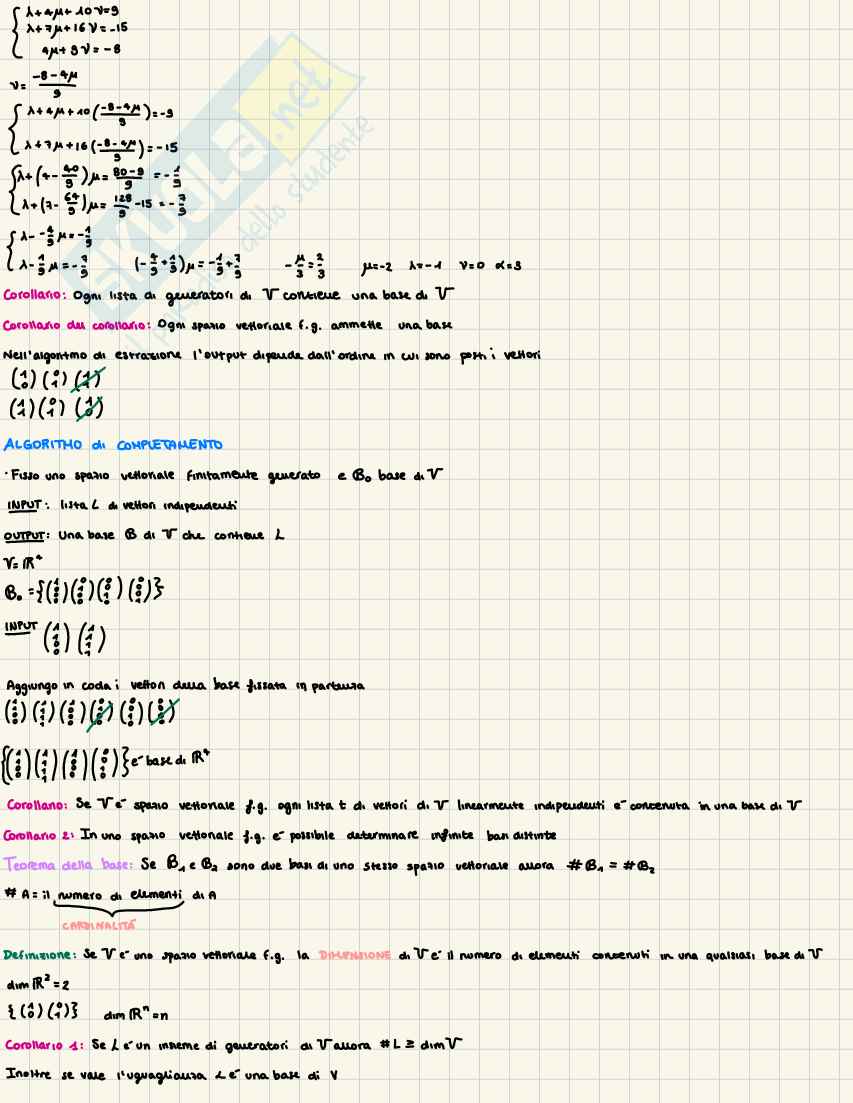 λ+4μ+10ν=9
λ+7μ+16ν=-15
4μ+9ν=-8
ν= (-8-4μ)/9
λ+4μ+10((-8-4μ)/9)=-9
λ+7μ+16((-8-4μ)/9)=-15
λ+(4-40/9)μ= (80-9)/9 = -1/9
λ+(7-64/9)μ= 128/9-15 = -7/9
λ--4/9μ=-1/9
λ-1/9μ=-7/9 (-4/9+1/9)μ=-1/9+7/9 -μ/3=2/3 μ=-2 λ=-1 ν=0 α=3
Corollario: Ogni lista di generatori di V contiene una base di V
Corollario del corollario: Ogni spazio vettoriale f.g. ammette una base
Nell'algoritmo di estrazione l'output dipende dall'ordine in cui sono posti i vettori
(1 0) (0 1) (1 1)
(1 1) (0 1) (1 0)
ALGORITMO di COMPLETAMENTO
·Fisso uno spazio vettoriale finitamente generato e B₀ base di V
INPUT: lista L di vettori indipendenti
OUTPUT: Una base B di V che contiene L
V=ℝ⁴
B₀ ={(1 0 0 0) (0 1 0 0) (0 0 1 0) (0 0 0 1)}
INPUT (1 1 0 0) (1 1 1 1)
Aggiungo in coda i vettori della base fissata in partenza
(1 1 0 0) (1 1 1 1) (1 0 0 0) (0 1 0 0) (0 0 1 0) (0 0 0 1)
{(1 1 0 0) (1 1 1 1) (1 0 0 0) (0 0 1 0)} è base di ℝ⁴
Corollario: Se V è spazio vettoriale f.g. ogni lista t di vettori di V linearmente indipendenti è contenuta in una base di V
Corollario 2: In uno spazio vettoriale f.g. è possibile determinare infinite basi distinte
Teorema della base: Se B₁ e B₂ sono due basi di uno stesso spazio vettoriale allora #B₁ = #B₂
# A = il numero di elementi di A
CARDINALITÁ
Definizione: Se V è uno spazio vettoriale f.g. la DIMENSIONE di V è il numero di elementi contenuti in una qualsiasi base di V
dim ℝ²=2
{(1 0) (0 1)} dim ℝⁿ=n
Corollario 1: Se L è un insieme di generatori di V allora #L ≥ dim V
Inoltre se vale l'uguaglianza L è una base di V
SKUOLA.net
il portale dello studente